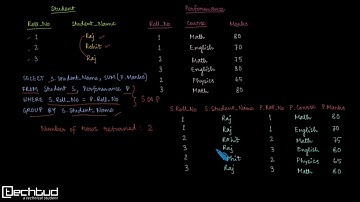 Student
Roll_No Student_Name
1 Raj
2 Rohit
3 Raj
Performance
Roll_No Course Marks
1 Math 80
1 English 70
2 Math 75
3 English 80
2 Physics 65
3 Math 80
SELECT S.Student_Name, SUM(P.Marks)
FROM Student S, Performance P
WHERE S.Roll_No = P.Roll_No
GROUP BY S.Student_Name
Number of rows returned: 2
S.Roll_No S.Student_Name P.Roll_No P.Course P.Marks
1 Raj 1 Math 80
1 Raj 1 English 70
2 Rohit 2 Math 75
3 Raj 3 English 80
2 Rohit 2 Physics 65
3 Raj 3 Math 80
techtud
a technical student